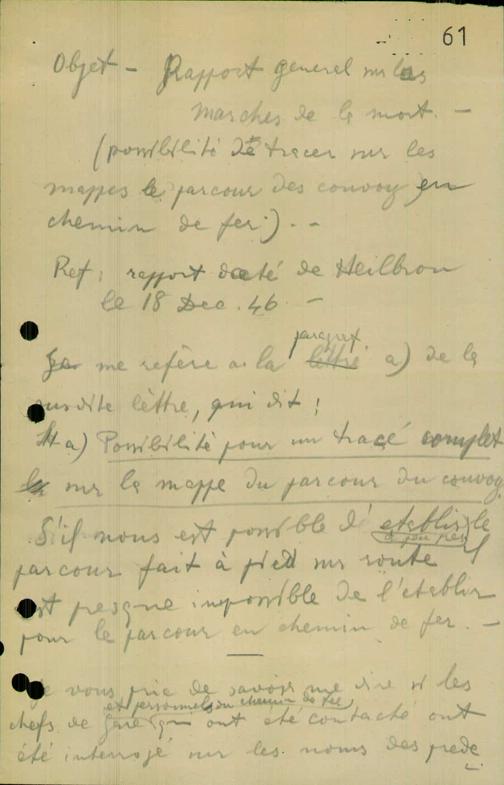 61
Objet - Rapport general sur les
marches de la mort. -
(possibilité de tracer sur les
mappes le parcour des convoy en
chemin de fer). --
Ref: rapport daté de Heilbron
le 18 Dec. 46. -
paragraf.
Je me refère a la lèttre a) de la
susdite lèttre, qui dit:
"a) Possibilité pour un tracé complet
sur la mappe du parcour du convoy
S'il nous est possible d' etablir le
a peu près
parcour fait à pied sur route il
est presque impossible de l'etablir
pour le parcour en chemin de fer. -
Je vous prie de savoir me dire si les
et personnels du chemin de fer
chefs de gare qui ont été contacté ont
été interrogé sur les noms des